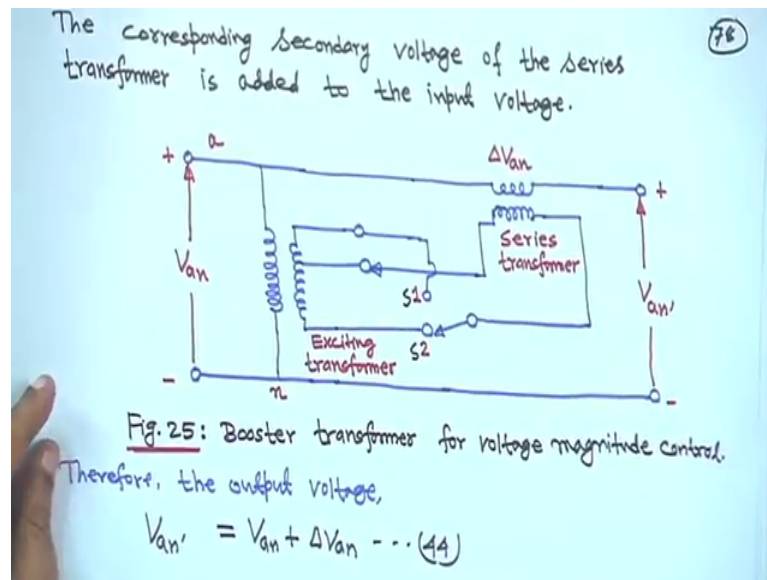 The corresponding secondary voltage of the series
78
transformer is added to the input voltage.
a
ΔVan
+
+
Series
transformer
Van
S1
Van'
Exciting
transformer
S2
-
n
-
Fig. 25: Booster transformer for voltage magnitude control.
Therefore, the output voltage,
Van' = Van + ΔVan --- (44)